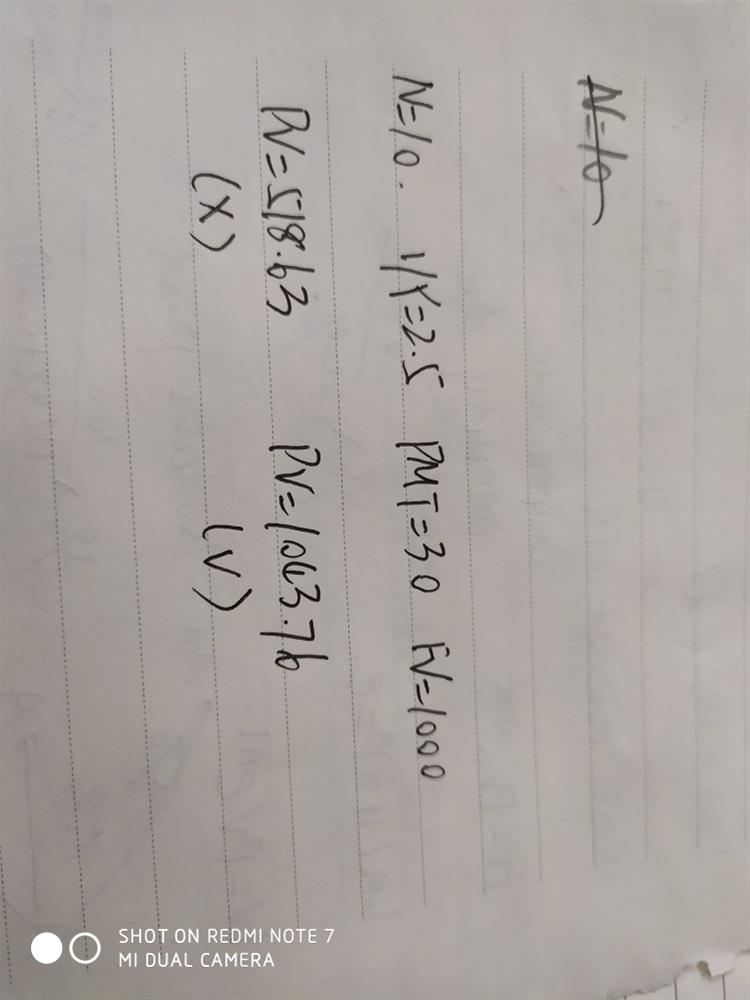 N=10
N=10. I/Y=2.5 PMT=30 FV=1000
PV=518.63 PV=1043.76
(X) (V)
SHOT ON REDMI NOTE 7
MI DUAL CAMERA